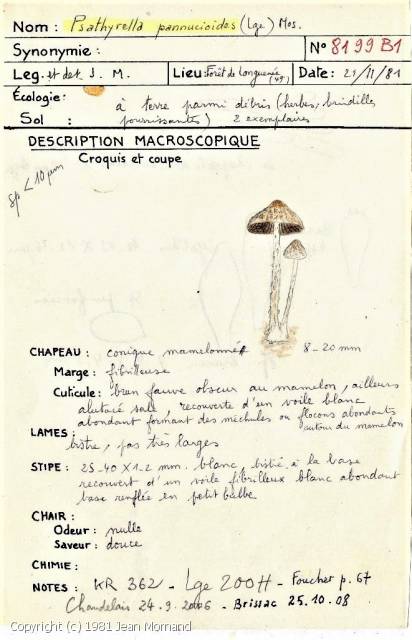 Nom : Psathyrella pannucioides (Lge) Mos.
Synonymie :
N° 8199 B1
Leg. et det. J. M.
Lieu : Forêt de Longuenée (49)
Date : 21/11/81
Écologie : à terre parmi débris (herbes, brindilles
Sol : pourrissantes) 2 exemplaires
DESCRIPTION MACROSCOPIQUE
Croquis et coupe
sp < 10 µm
CHAPEAU : conique mamelonné 8-20 mm
Marge : fibrilleuse
Cuticule : brun fauve obscur au mamelon, ailleurs
alutacé sale, recouverte d'un voile blanc
abondant formant des méchules ou flocons abondants
autour du mamelon
LAMES : bistre, pas très larges
STIPE : 25-40 X 1-2 mm. blanc, bistré à la base
recouvert d'un voile fibrilleux blanc abondant
base renflée en petit bulbe
CHAIR :
Odeur : nulle
Saveur : douce
CHIMIE :
NOTES : KR 362 - Lge 200H - Foucher p. 67
Chandelais 24.9.2006 - Brissac 25.10.08
Copyright (c) 1981 Jean Mornand